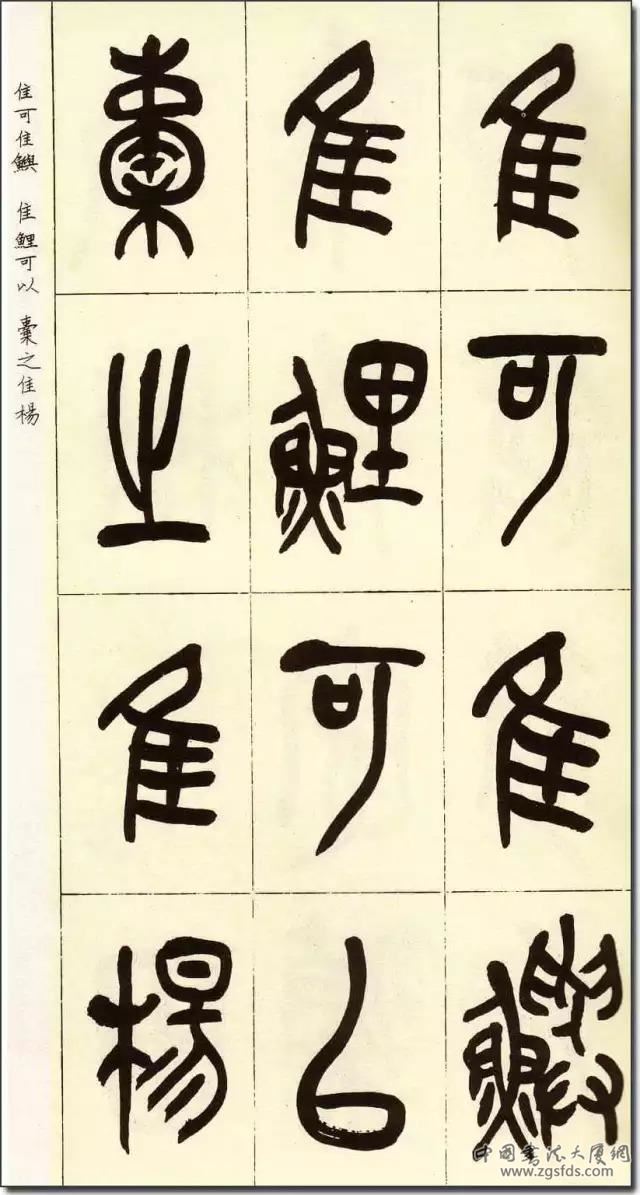 隹可隹鱮
隹鯉可㠯
橐之隹楊
隹可隹鱮 隹鯉可以 橐之隹楊
中國書法大厦網
www.zgsfds.com